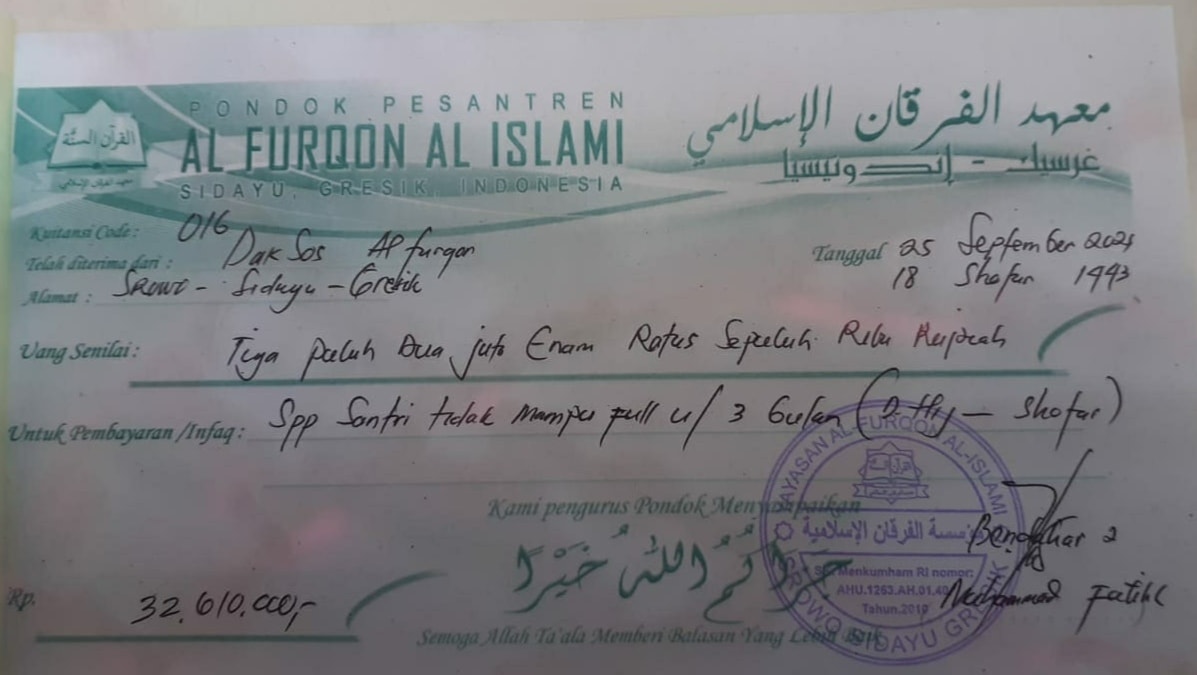 PONDOK PESANTREN
AL FURQON AL ISLAMI
SIDAYU, GRESIK, INDONESIA
معهد الفرقان الإسلامي
غرسيك - إندونيسيا
القرآن السنة
معهد الفرقان الإسلامي
Kuitansi Code : 016
Telah diterima dari : Dak Sos Al furqon
Alamat : Srowo - Sidayu - Gresik
Tanggal 25 September 2021
18 Shofar 1443
Uang Senilai : Tiga puluh Dua juta Enam Ratus Sepuluh Ribu Rupiah
Untuk Pembayaran /Infaq : Spp Santri tidak mampu full u/ 3 bulan (D. Hij - Shofar)
Kami pengurus Pondok Menyampaikan
جزاكم الله خيرا
Semoga Allah Ta'ala Memberi Balasan Yang Lebih Baik
Rp. 32.610.000,-
YAYASAN AL FURQON AL-ISLAMI
مؤسسة الفرقان الإسلامية
SK. Menkumham RI nomor:
AHU.1263.AH.01.40
Tahun.2010
SROWO SIDAYU GRESIK
Bendahar 2
Muhammad Fatihk